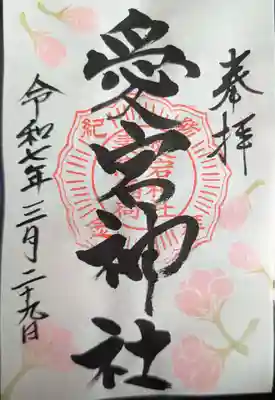 奉拝
愛宕神社
令和七年三月二十九日